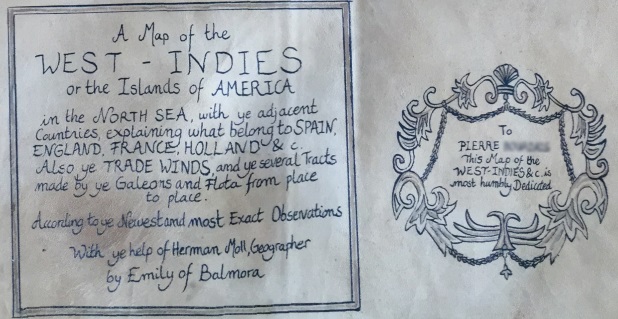 A Map of the
WEST - INDIES
or the Islands of AMERICA
in the NORTH SEA, with ye adjacent
Countries, explaining what belong to SPAIN,
ENGLAND, FRANCE, HOLLAND & c.
Also ye TRADE WINDS, and ye several Tracts
made by ye Galeons and Flota from place
to place.
According to ye Newest and most Exact Observations
With ye help of Herman Moll, Geographer
by Emily of Balmora
To
PIERRE
This Map of the
WEST-INDIES & c. is
most humbly Dedicated